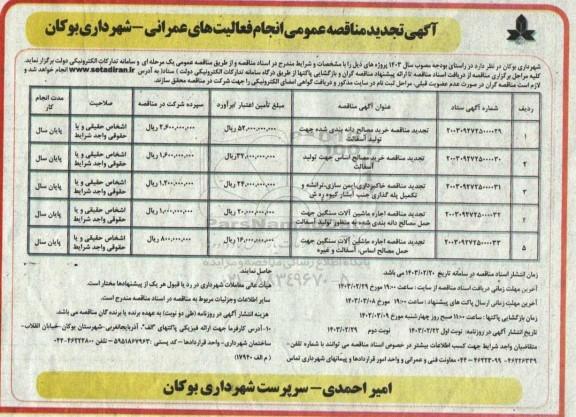 آگهی تجدید مناقصه عمومی انجام فعالیت های عمرانی – شهرداری بوکان
شهرداری بوکان در نظر دارد در راستای بودجه مصوب سال ۱۴۰۳ پروژه های ذیل را با مشخصات و شرایط مندرج در اسناد مناقصه و از طریق مناقصه عمومی یک مرحله ای و سامانه تدارکات الکترونیکی دولت برگزار نماید.
کلیه مراحل برگزاری مناقصه از دریافت اسناد مناقصه تا ارائه پیشنهاد مناقصه گران و بازگشایی پاکتها از طریق درگاه سامانه تدارکات الکترونیکی دولت ) ستاد( به آدرس www.setadiran.ir انجام خواهد شد و
لازم است مناقصه گران در صورت عدم عضویت قبلی، مراحل ثبت نام در سایت مذکور و دریافت گواهی امضای الکترونیکی را جهت شرکت در مناقصه محقق سازند.
ردیف شماره آگهی ستاد عنوان آگهی مناقصه مبلغ تأمین اعتبار /برآورد سپرده شرکت در مناقصه صلاحیت مدت انجام کار
۱ ۲۰۰۳۰۹۲۷۲۵۰۰۰۰۲۹ تجدید مناقصه خرید مصالح دانه بندی شده جهت تولید آسفالت ۵۲,۰۰۰,۰۰۰,۰۰۰ ریال ۲,۶۰۰,۰۰۰,۰۰۰ ریال اشخاص حقیقی و یا حقوقی واجد شرایط پایان سال
۲ ۲۰۰۳۰۹۲۷۲۵۰۰۰۰۳۰ تجدید مناقصه خرید مصالح اساس جهت تولید آسفالت ۳۲,۰۰۰,۰۰۰,۰۰۰ ریال ۱,۶۰۰,۰۰۰,۰۰۰ ریال اشخاص حقیقی و یا حقوقی واجد شرایط پایان سال
۳ ۲۰۰۳۰۹۲۷۲۵۰۰۰۰۳۱ تجدید مناقصه خاکبرداری،ایمن سازی،ترانشه و تکمیل پله گذاری جنب آبشار کیوه ره ش ۲۴,۰۰۰,۰۰۰,۰۰۰ ریال ۱,۲۰۰,۰۰۰,۰۰۰ ریال اشخاص حقیقی و یا حقوقی واجد شرایط پایان سال
۴ ۲۰۰۳۰۹۲۷۲۵۰۰۰۰۳۲ تجدید مناقصه اجاره ماشین آلات سنگین جهت حمل مصالح دانه بندی شده به منظور تولید آسفالت ۲۰,۰۰۰,۰۰۰,۰۰۰ ریال ۱,۰۰۰,۰۰۰,۰۰۰ ریال اشخاص حقیقی و یا حقوقی واجد شرایط پایان سال
۵ ۲۰۰۳۰۹۲۷۲۵۰۰۰۰۳۳ تجدید مناقصه اجاره ماشین آلات سنگین جهت حمل مصالح اساس، آسفالت و غیره ۱۶,۰۰۰,۰۰۰,۰۰۰ ریال ۸۰۰,۰۰۰,۰۰۰ ریال اشخاص حقیقی و یا حقوقی واجد شرایط پایان سال
زمان انتشار اسناد مناقصه در سامانه تاریخ ۱۴۰۳/۰۲/۲۰ می باشد.
آخرین مهلت زمانی دریافت اسناد مناقصه از سایت : ساعت ۱۹:۰۰ مورخ ۱۴۰۳/۰۲/۲۹
آخرین مهلت زمانی ارسال پاکت های پیشنهاد : ساعت ۱۹:۰۰ مورخ ۱۴۰۳/۰۳/۰۸
زمان بازگشایی پاکتها : ساعت ۱۱:۰۰ صبح روز چهارشنبه مورخ ۱۴۰۳/۰۳/۰۹
تاریخ انتشار آگهی در روزنامه: نوبت اول ۱۴۰۳/۰۲/۲۲ نوبت دوم ۱۴۰۳/۰۲/۲۹
متقاضیان واجد شرایط جهت کسب اطلاعات بیشتر در خصوص اسناد مناقصه می توانند با شماره تلفن:
۴۶۲۲۶۳۳۹ - ۴۶۲۲۳۰۹۹-۰۴۴ معاونت فنی و عمرانی و واحد امور قراردادها و پیمانهای شهرداری تماس
حاصل نمایند.
هیأت عالی معاملات شهرداری در رد یا قبول هر یک از پیشنهادها مختار است.
سایر اطلاعات وجزئیات مربوط به مناقصه در اسناد مناقصه مندرج است.
هزینه انتشار آگهی در روزنامه (طی دو نوبت) به عهده برنده یا برنده گان مناقصه می باشد.
۱۰-آدرس کارفرما جهت ارائه فیزیکی پاکتهای "الف"، آذربایجانغربی-شهرستان بوکان -خیابان انقلاب-
ساختمان شهرداری- واحد قراردادها – کد پستی :۵۹۵۱۸۶۷۹۶۳ – تلفن ۴۶۲۲۲۸۰۰-۰۴۴
( م الف ۱۷۹۴۰ )
امیر احمدی – سرپرست شهرداری بوکان